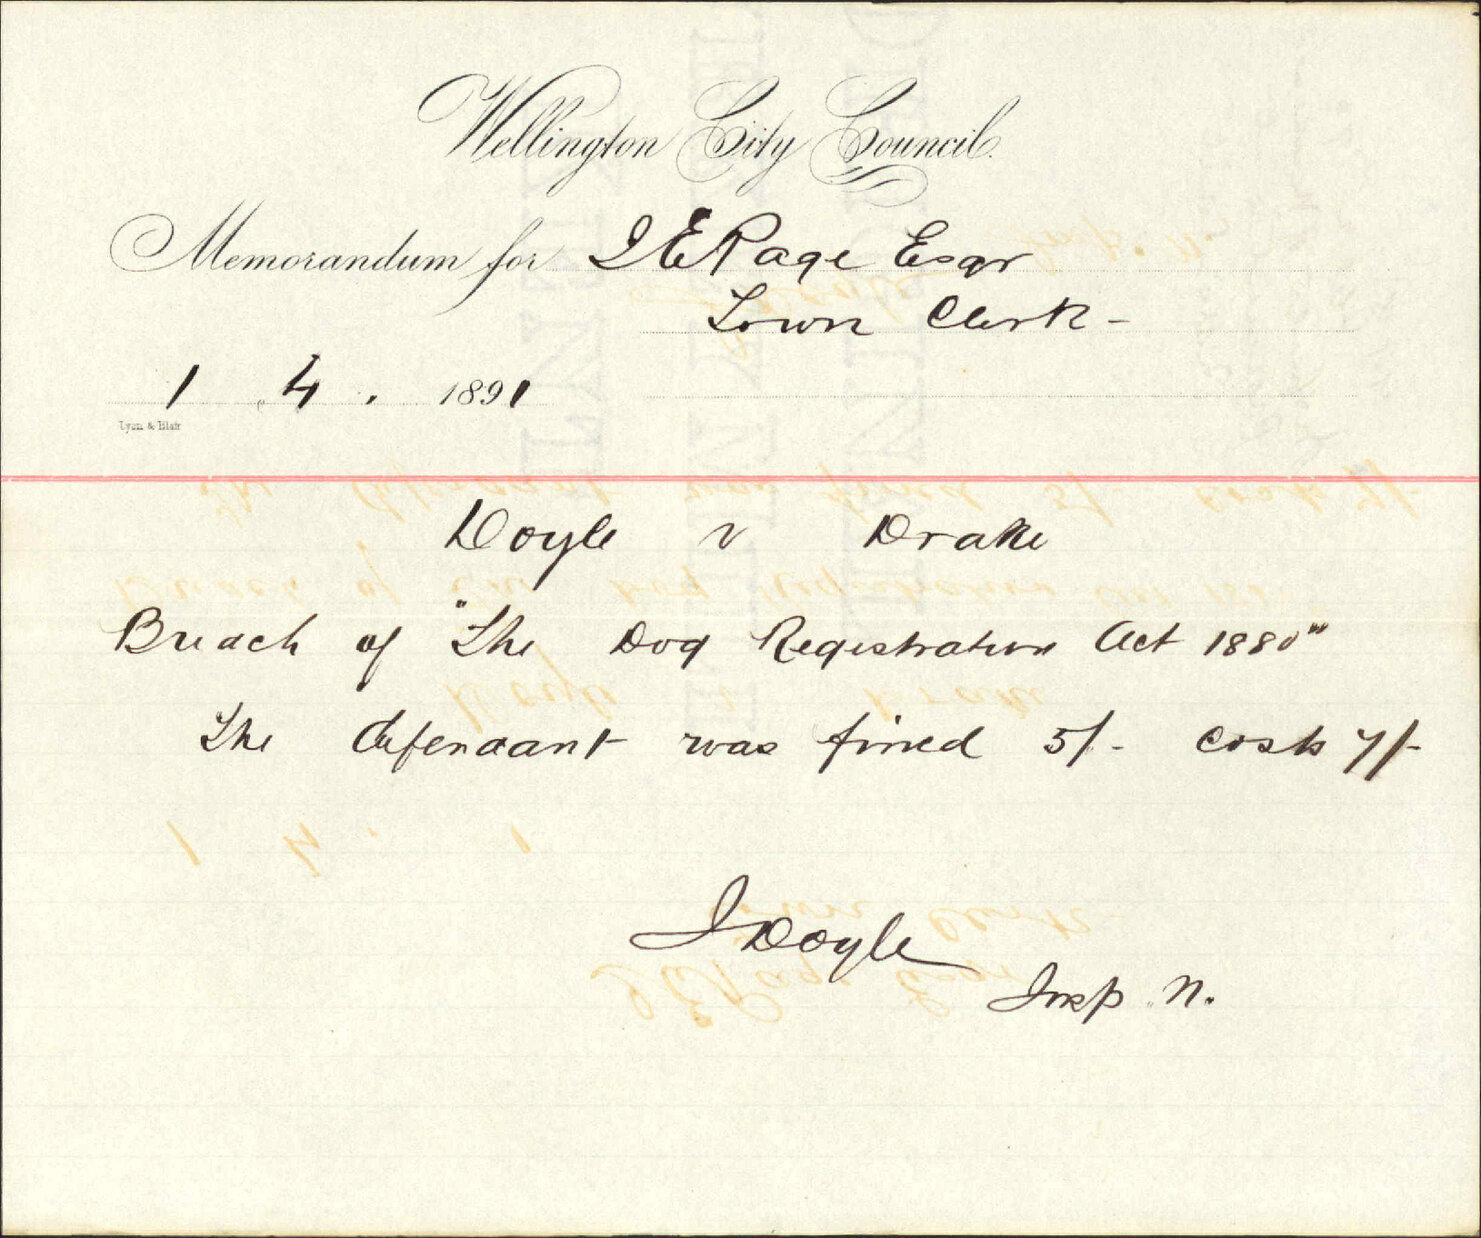 Wellington City Council.
Memorandum for J E Page Esqr
Town Clerk -
1 . 4 . 1891
Lyon & Blair
Doyle v Drake
Breach of "The Dog Registration Act 1880"
The defendant was fined 5/- costs 7/-
J Doyle
Insp. N.